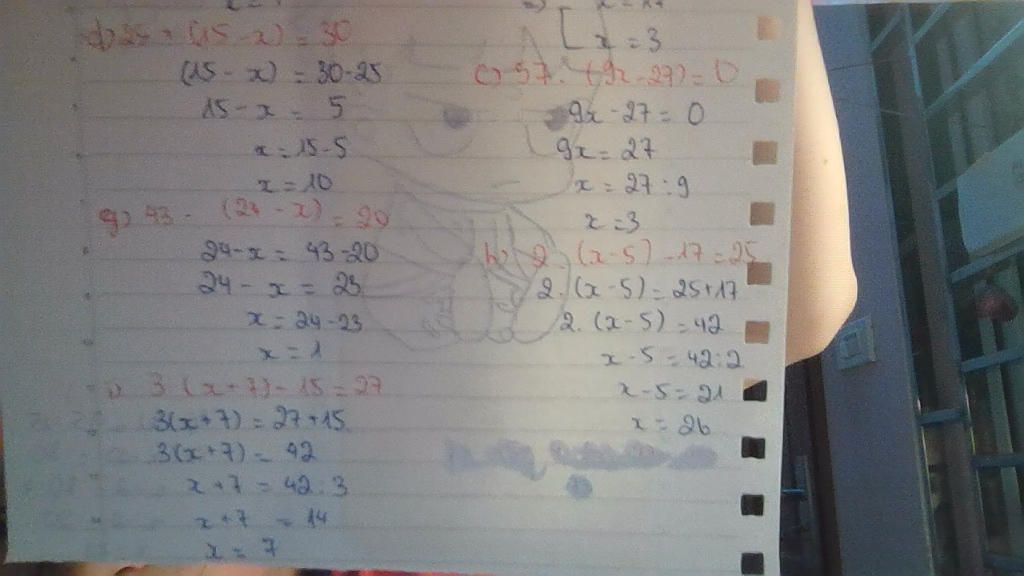 d) 25 + (15 - x) = 30
(15 - x) = 30 - 25
15 - x = 5
x = 15 - 5
x = 10
g) 43 - (24 - x) = 20
24 - x = 43 - 20
24 - x = 23
x = 24 - 23
x = 1
i) 3 (x + 7) - 15 = 27
3(x + 7) = 27 + 15
3(x + 7) = 42
x + 7 = 42 : 3
x + 7 = 14
x = 7
x = 3
c) 57 . (9x - 27) = 0
9x - 27 = 0
9x = 27
x = 27 : 9
x = 3
h) 2 (x - 5) - 17 = 25
2. (x - 5) = 25 + 17
2. (x - 5) = 42
x - 5 = 42 : 2
x - 5 = 21
x = 26